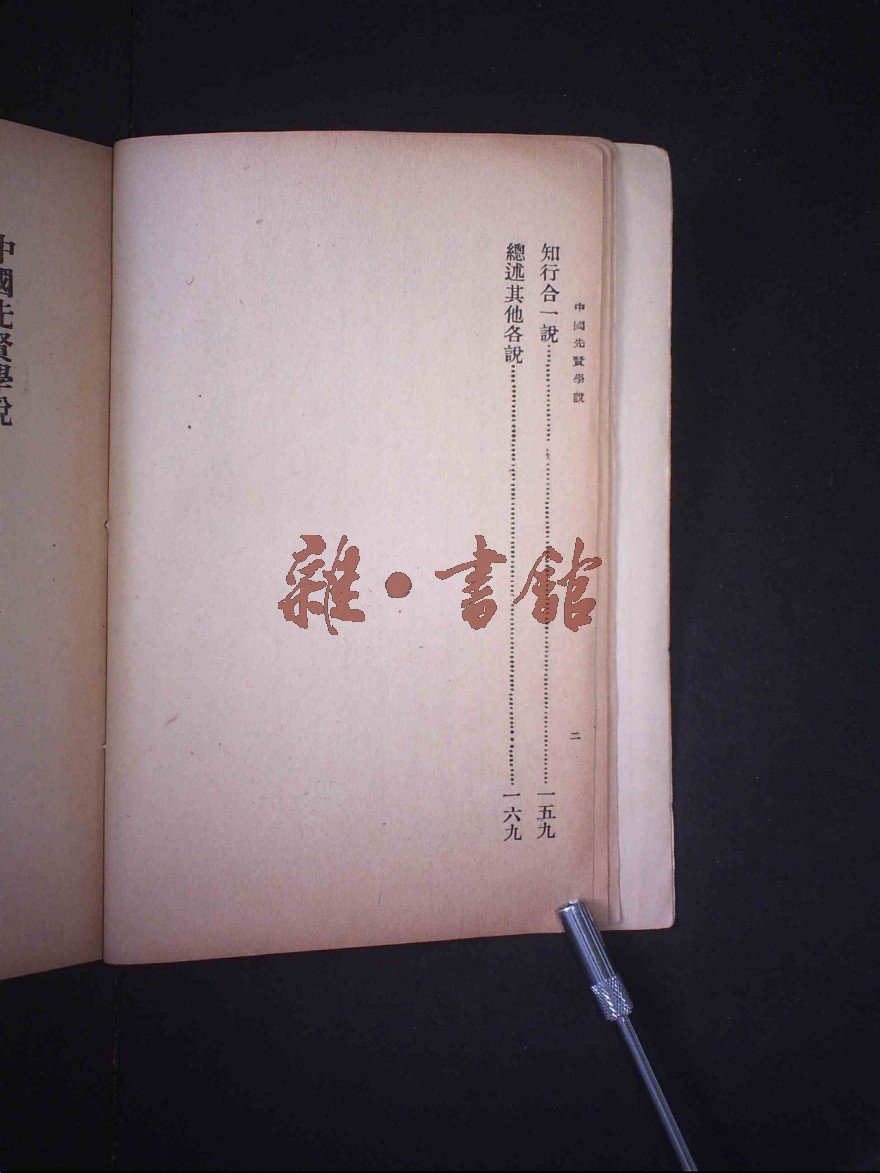 中國先賢學說
二
知行合一說⋯⋯⋯⋯⋯⋯⋯⋯⋯⋯一五九
總述其他各說⋯⋯⋯⋯⋯⋯⋯⋯⋯⋯一六九
中國先賢學說
雜·書館